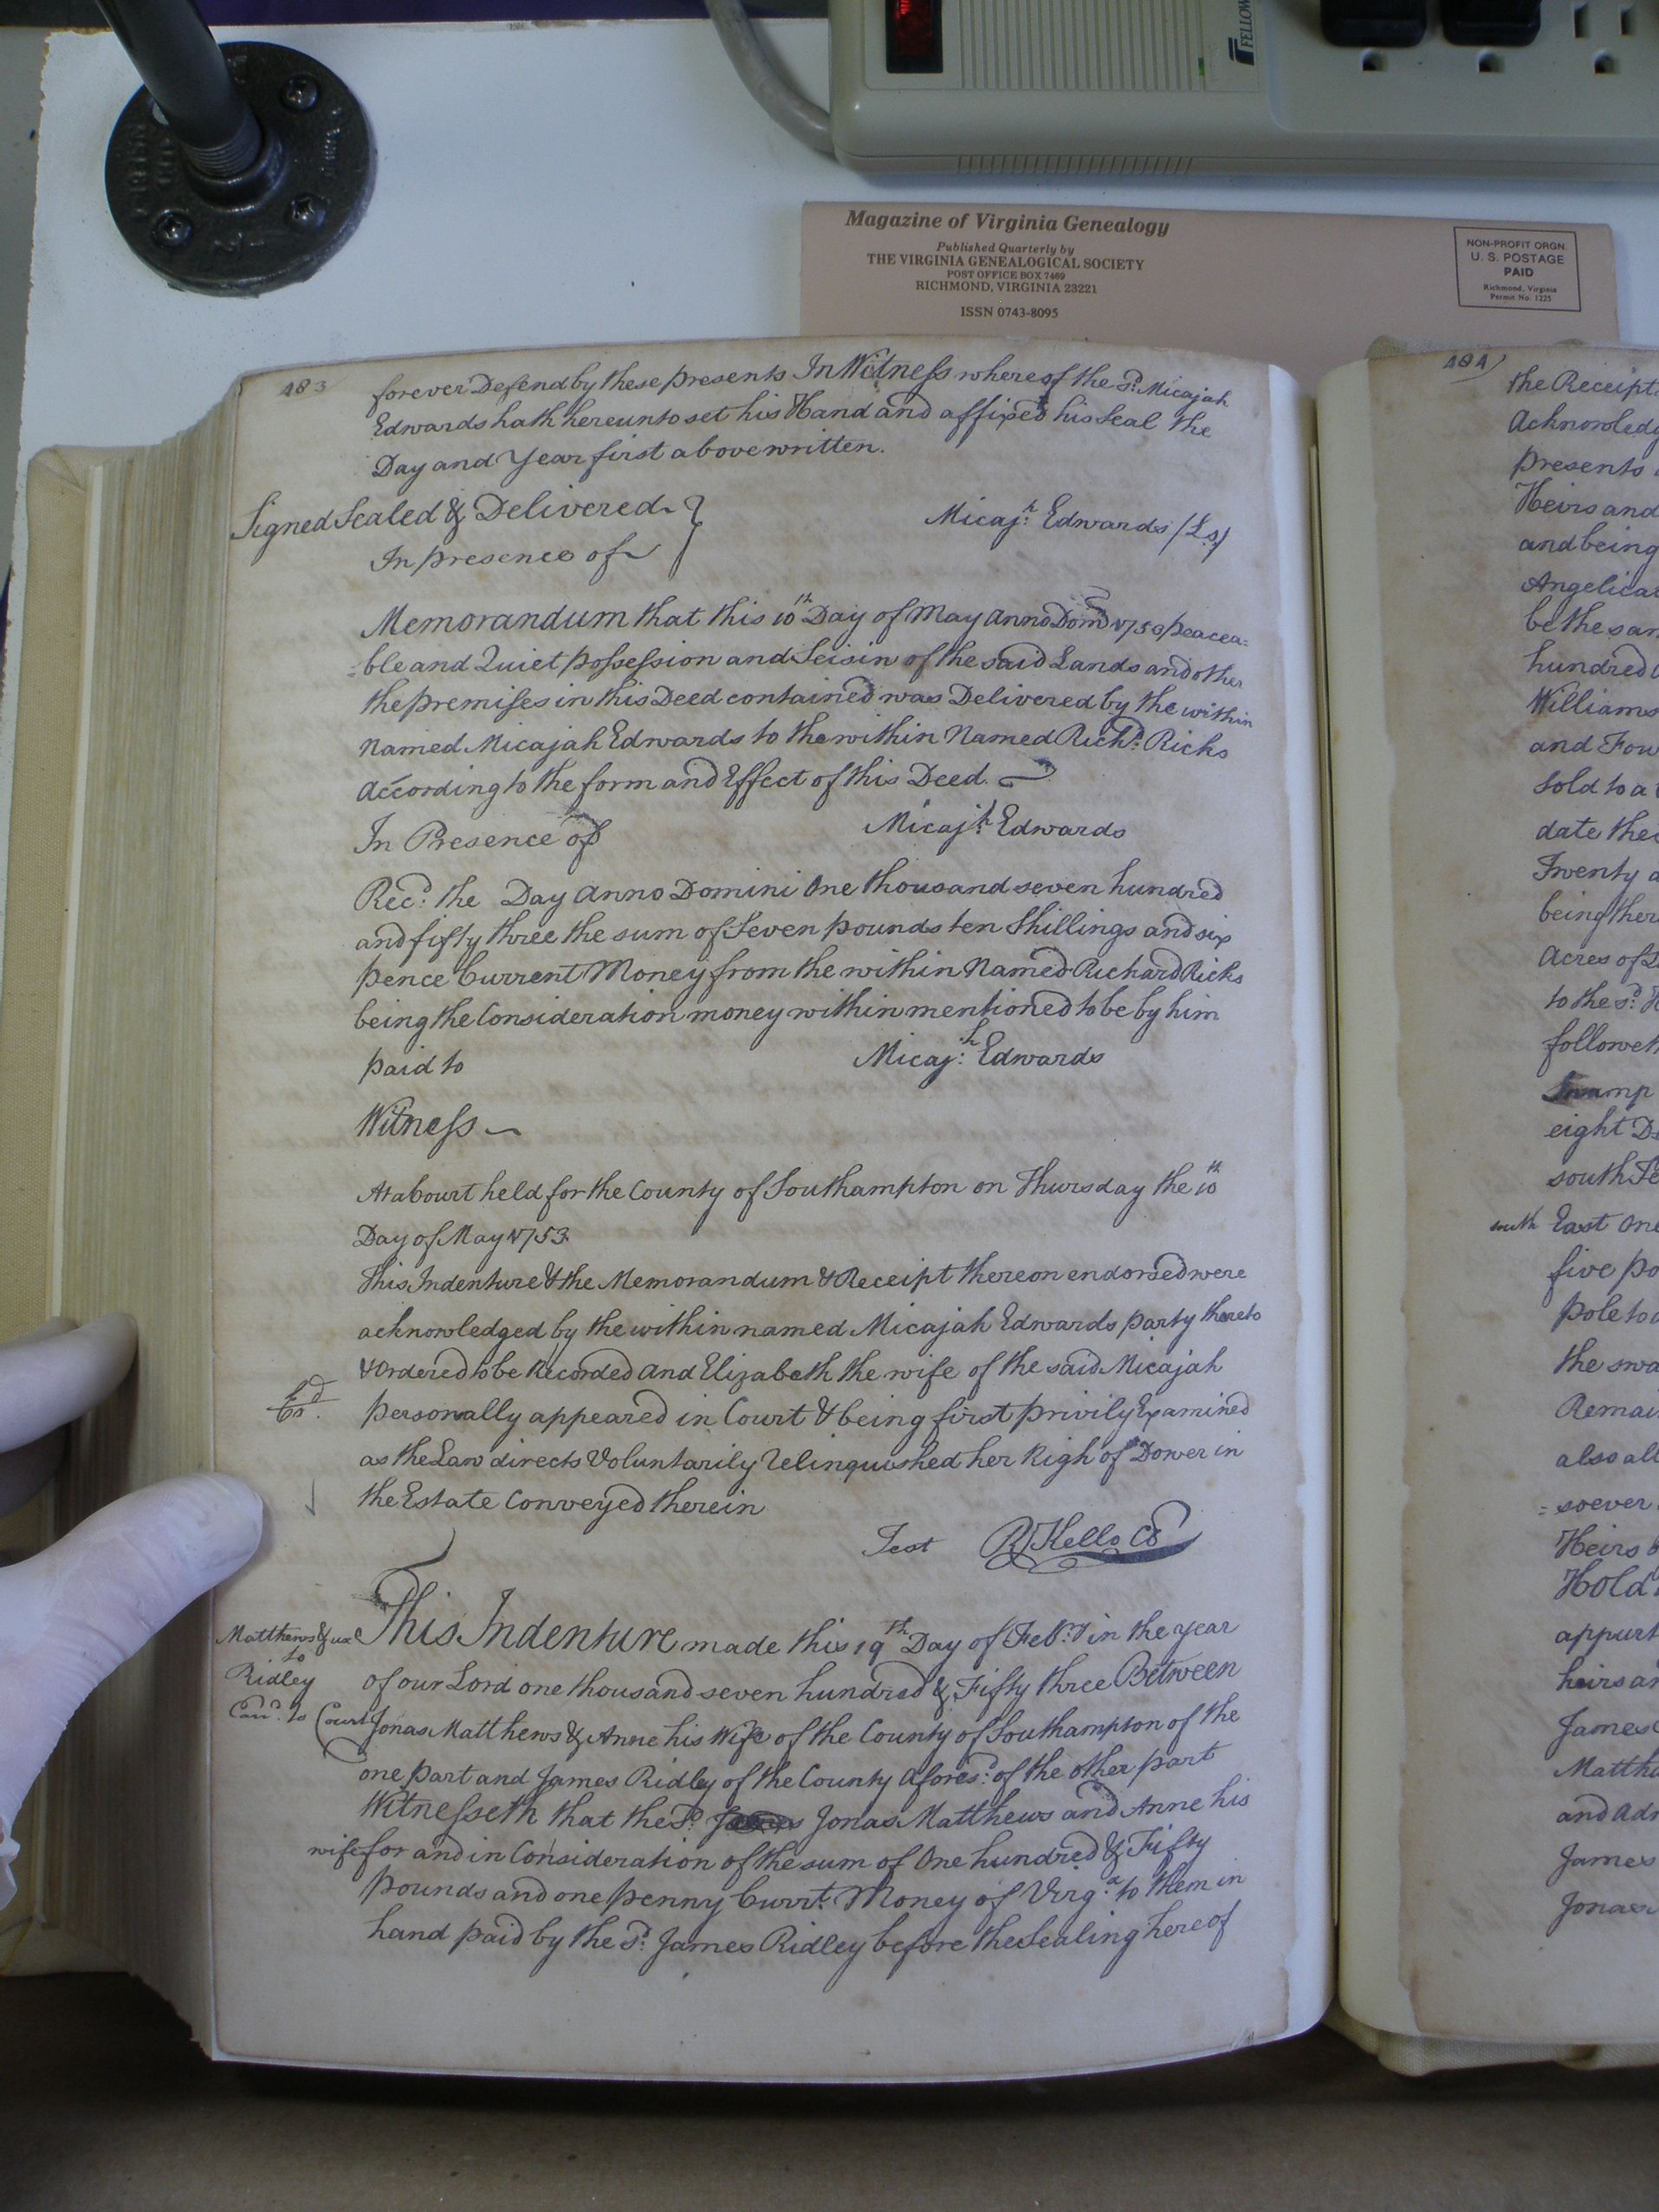 FELLOW
Magazine of Virginia Genealogy
Published Quarterly by
THE VIRGINIA GENEALOGICAL SOCIETY
POST OFFICE BOX 7469
RICHMOND, VIRGINIA 23221
ISSN 0743-8095
NON-PROFIT ORGN.
U. S. POSTAGE
PAID
Richmond, Virginia
Permit No. 1225
483
forever Defend by these presents In Witness whereof the sd. Micajah
Edwards hath hereunto set his Hand and affixed his Seal the
Day and Year first above written.
Signed Sealed & Delivered
In presence of
Micajh. Edwards (Ls)
Memorandum that this 10th Day of May Anno Dom 1753 peacea=
=ble and Quiet possession and Seisin of the said Lands and other
the premises in this Deed contained was Delivered by the within
Named Micajah Edwards to the within Named Richd. Ricks
According to the form and Effect of this Deed.
In Presence of
Micajh. Edwards
Recd. the Day Anno Domini One thousand seven hundred
and fifty three the sum of Seven pounds ten Shillings and six
pence Current Money from the within Named Richard Ricks
being the Consideration money within mentioned to be by him
paid to
Micajh. Edwards
Witness
At a Court held for the County of Southampton on Thursday the 10th
Day of May 1753.
This Indenture & the Memorandum & Receipt thereon endorsed were
acknowledged by the within named Micajah Edwards party thereto
& Ordered to be Recorded and Elizabeth the wife of the said Micajah
personally appeared in Court & being first privily Examined
as the Law directs Voluntarily relinquished her Righ of Dower in
the Estate Conveyed therein
Test RKello CC
Matthews & ux
to
Ridley
to Court
This Indenture made this 19th Day of Febry in the year
of our Lord one thousand seven hundred & Fifty three Between
Jonas Matthews & Anne his Wife of the County of Southampton of the
one part and James Ridley of the County Aforesd. of the other part
Witnesseth that the Sd. Jonas Matthews and Anne his
wife for and in Consideration of the sum of One hundred & Fifty
pounds and one penny Currt. Money of Virga. to them in
hand paid by the Sd. James Ridley before the Sealing hereof
484
the Receipt
Acknowledg
presents
Heirs and
and being
Angelica
be the sam
hundred
Williams
and Fou
sold to a
date the
Twenty a
being ther
Acres of
to the sd.
followeth
Swamp
eight
south
south East One
five po
pole to
the swa
Remai
also all
=soever
Heirs
Hold
appurt
heirs an
James
Matth
and Adm
James
Jonas